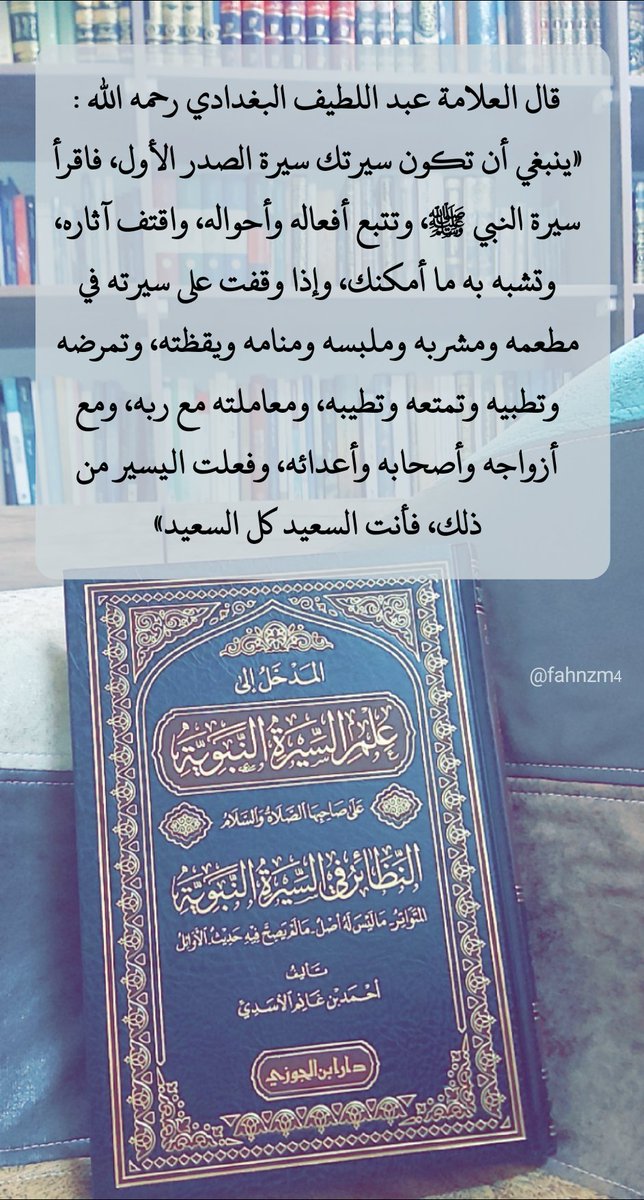 قال العلامة عبد اللطيف البغدادي رحمه الله :
«ينبغي أن تكون سيرتك سيرة الصدر الأول، فاقرأ
سيرة النبي ﷺ، وتتبع أفعاله وأحواله، واقتف آثاره،
وتشبه به ما أمكنك، وإذا وقفت على سيرته في
مطعمه ومشربه وملبسه ومنامه ويقظته، وتمرضه
وتطبيه وتمتعه وتطيبه، ومعاملته مع ربه، ومع
أزواجه وأصحابه وأعدائه، وفعلت اليسير من
ذلك، فأنت السعيد كل السعيد»
@fahnzm4
المدخل إلى
علم السيرة النبوية
على صاحبها الصلاة والسلام
النظائر في السيرة النبوية
المتواتر - ما ليس له أصل - ما لم يصح فيه حديث - الأوائل
تأليف
أحمد بن غانم الأسدي
دار ابن الجوزي